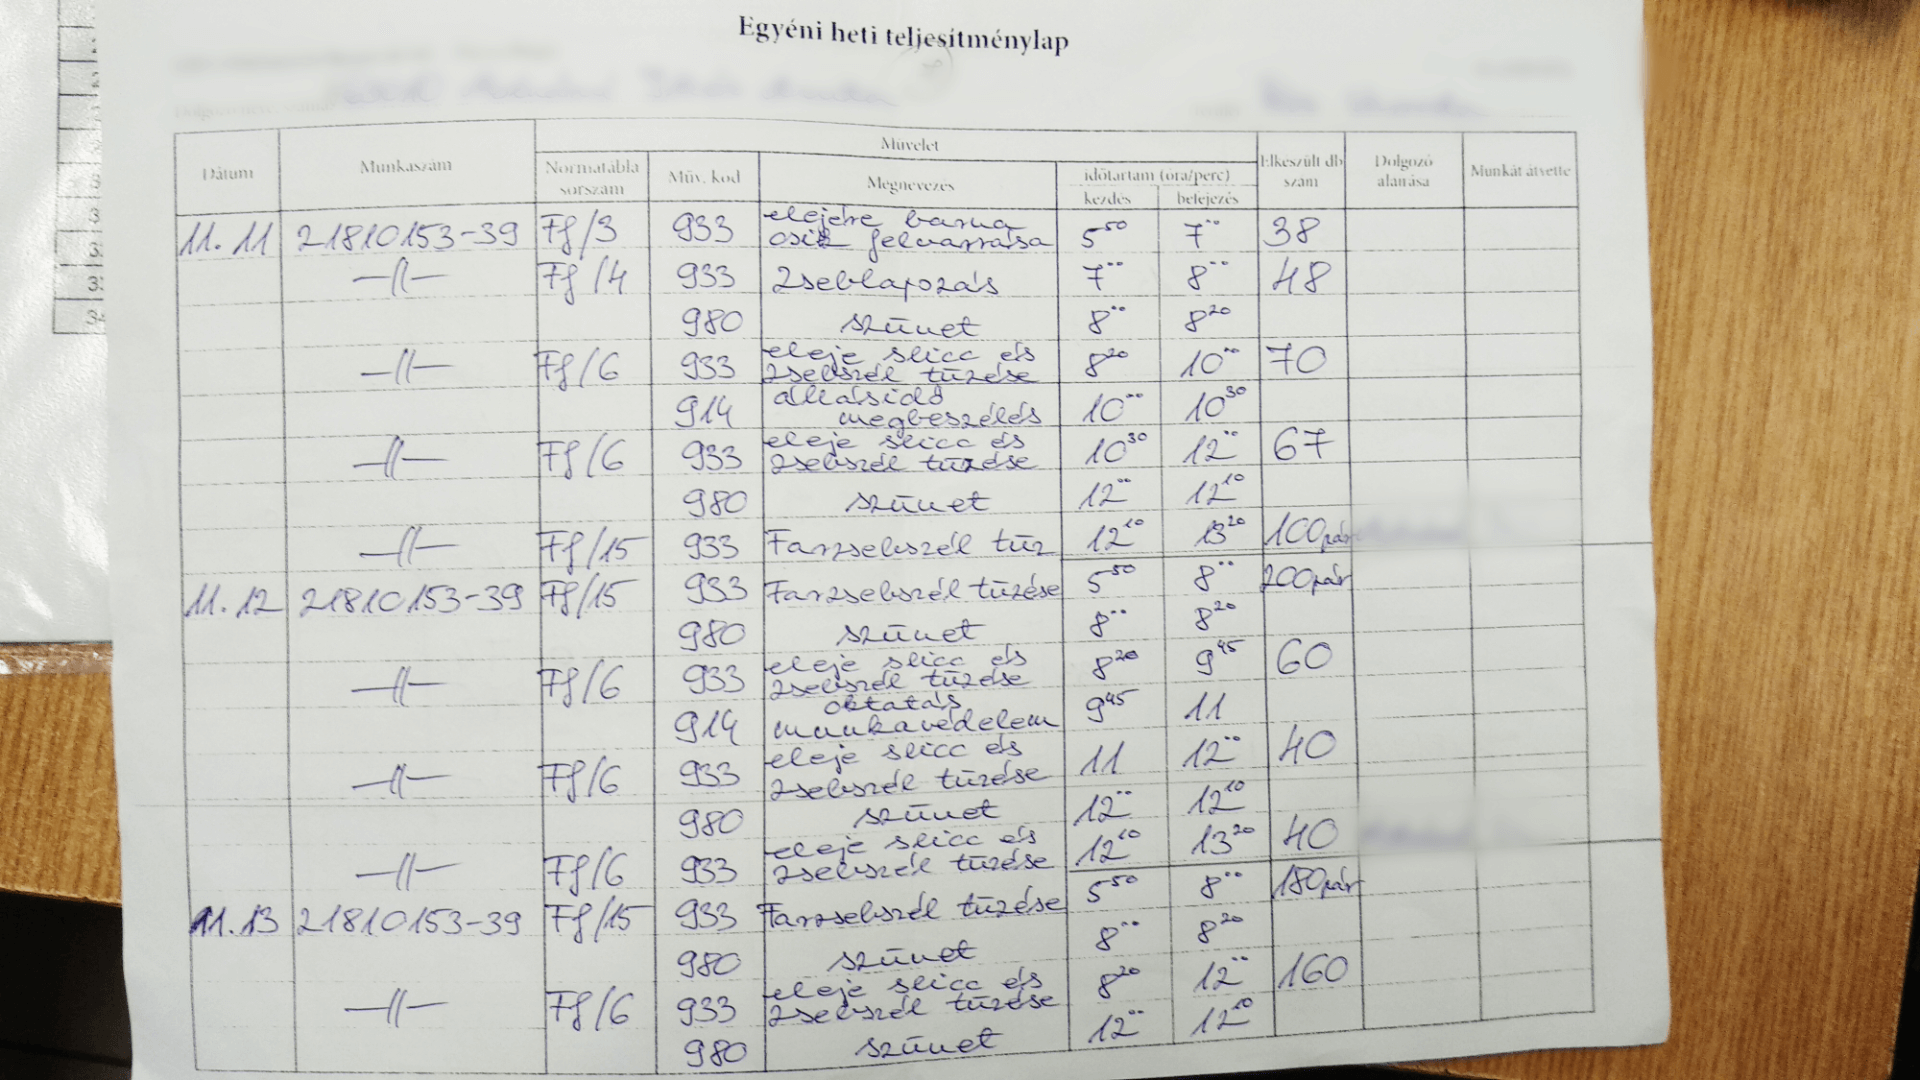 Egyéni heti teljesítménylap
Dátum Munkaszám Művelet Elkészült db szám Dolgozó aláírása Munkát átvette
Normatábla sorszám Műv. kód Megnevezés időtartam (óra/perc)
kezdés befejezés
11.11 21810153-39 Ff/3 933 elejére barna csík felvarrása 5⁵⁰ 7⁰⁰ 38
-//- Ff/4 933 Zseblapozás 7⁰⁰ 8⁰⁰ 48
980 szünet 8⁰⁰ 8²⁰
-//- Ff/6 933 eleje slicc és zsebszél tűzése 8²⁰ 10⁰⁰ 70
914 állásidő megbeszélés 10⁰⁰ 10³⁰
-//- Ff/6 933 eleje slicc és zsebszél tűzése 10³⁰ 12⁰⁰ 67
980 szünet 12⁰⁰ 12¹⁰
-//- Ff/15 933 Farzsebszél tűz 12¹⁰ 13²⁰ 100pár
11.12 21810153-39 Ff/15 933 Farzsebszél tűzése 5⁵⁰ 8⁰⁰ 200pár
980 szünet 8⁰⁰ 8²⁰
-//- Ff/6 933 eleje slicc és zsebszél tűzése 8²⁰ 9⁴⁵ 60
914 oktatás munkavédelem 9⁴⁵ 11
-//- Ff/6 933 eleje slicc és zsebszél tűzése 11 12⁰⁰ 40
980 szünet 12⁰⁰ 12¹⁰
-//- Ff/6 933 eleje slicc és zsebszél tűzése 12¹⁰ 13²⁰ 40
11.13 21810153-39 Ff/15 933 Farzsebszél tűzése 5⁵⁰ 8⁰⁰ 180pár
980 szünet 8⁰⁰ 8²⁰
-//- Ff/6 933 eleje slicc és zsebszél tűzése 8²⁰ 12⁰⁰ 160
980 szünet 12⁰⁰ 12¹⁰